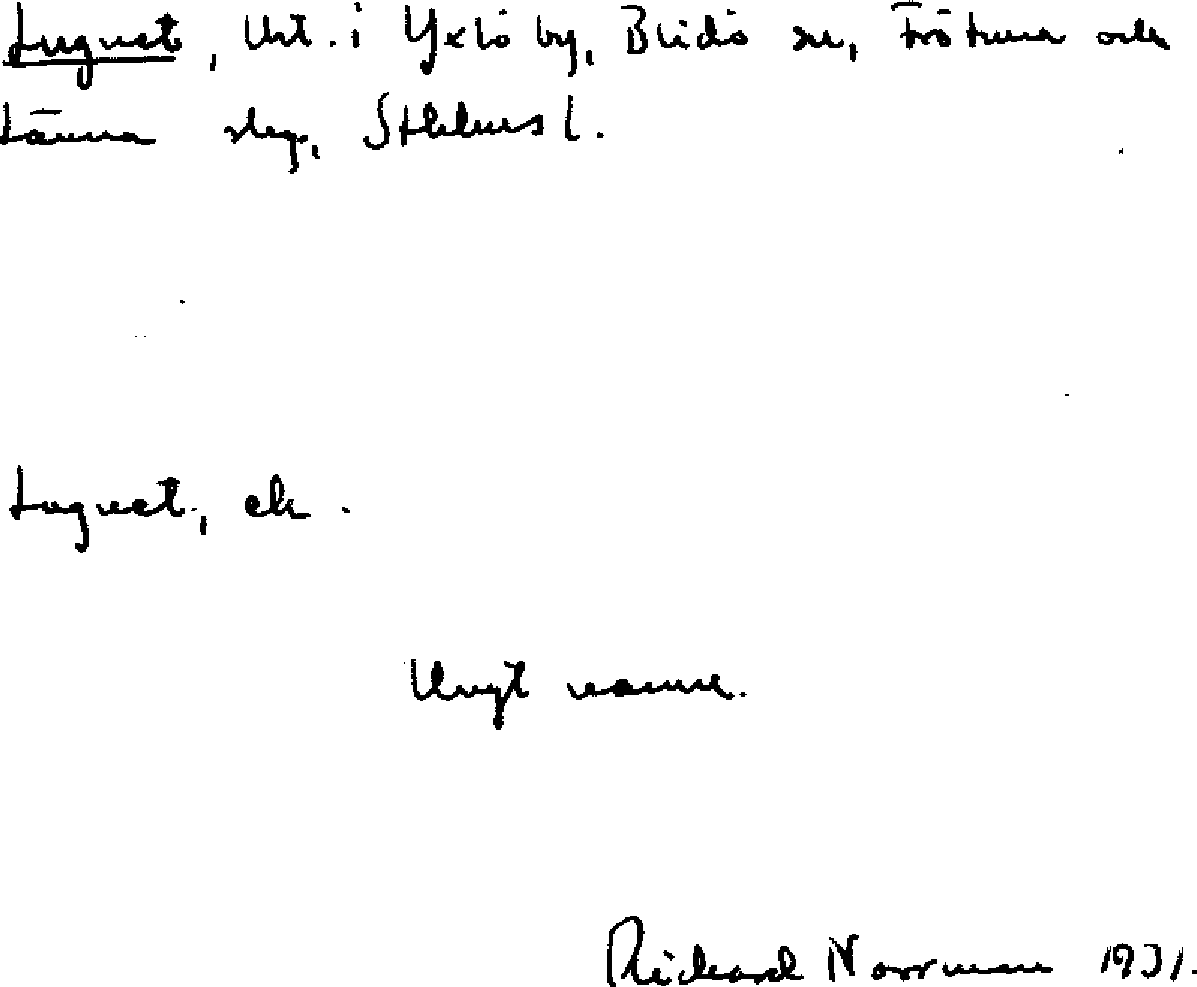 Lugnet, Urt. i Yxlö by, Blidö sn, Frötuna och
Länna slg, Sthlms l.
Lugnet, ch.
Ungt namn.
Richard Norrman 1931.